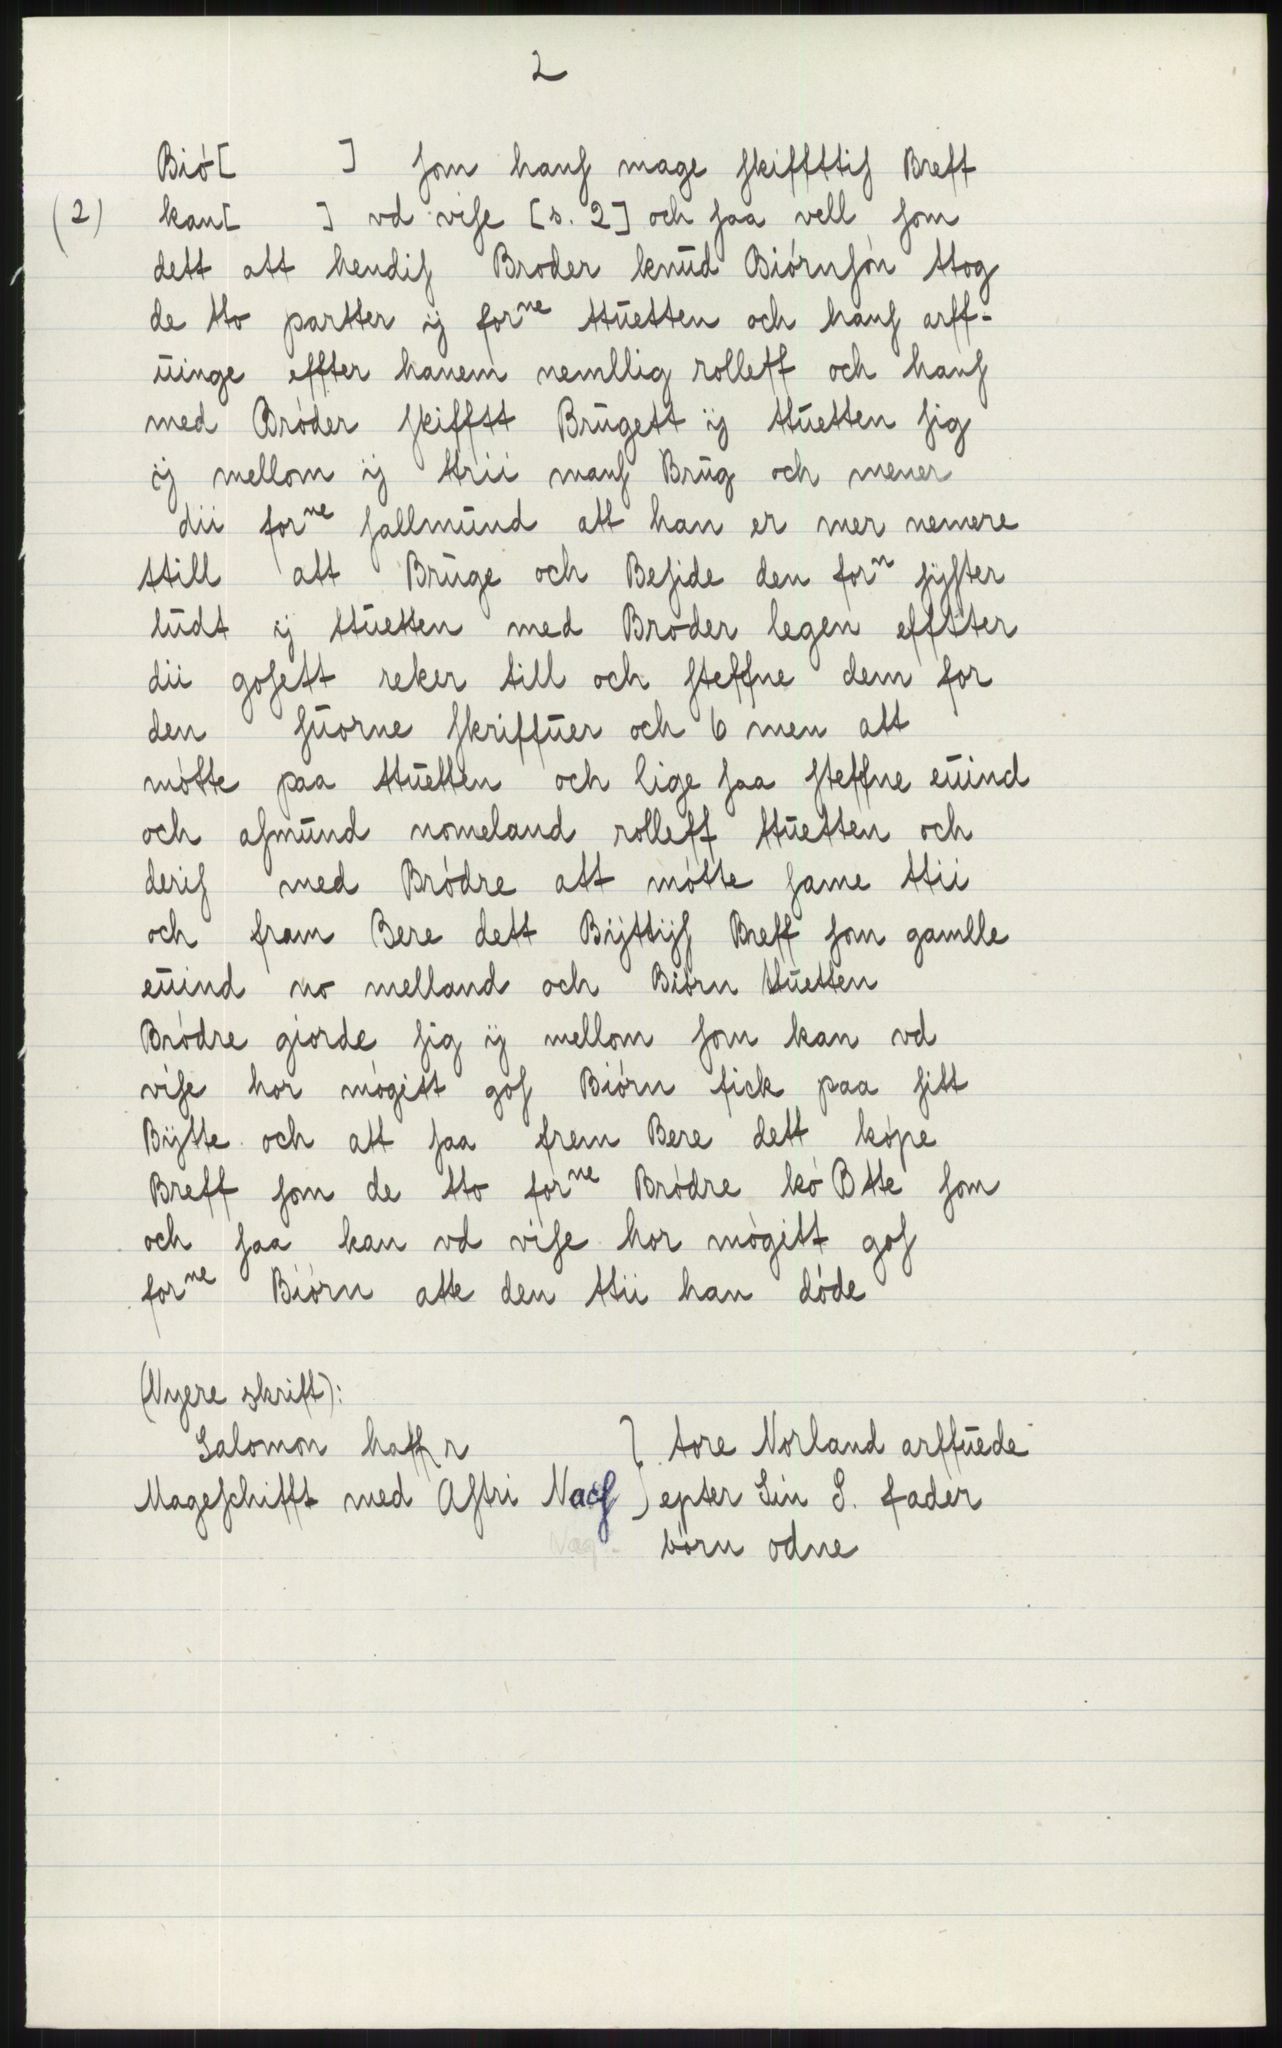 2
Bió[ ] ſom hanſ mage ſkiffttiſ Breff
(2) kan[ ] vd viſe [s. 2] och ſaa vell ſom
dett att hendiſ Broder knūd Biórnſón ttog
de tto partter ij forⁿᵉ ttūetten och hanſ arff-
ūinge effter hanem nemllig rolleff och hanſ
med Bróder ſkifftt Brūgett ij ttūetten ſig
ij mellom ij ttrii manſ Brūg och mener
dii forⁿᵉ ſallmūnd att han er mer nemere
ttill att Brūge och Beſide den forⁿ ſijſter
lūdt ij ttūetten med Broder legen effster
dii goſett reker till och ſteffne dem for
den ſūorne ſkriffūer och 6 men att
mótte paa ttūetten och lige ſaa ſteffne eūind
och aſmūnd nomeland rolleff ttūetten och
deriſ med Bródre att mótte ſame ttii
och fram Bere dett Bijttijſ Breff ſom gamlle
eūind no melland och Biórn ttūetten
Bródre giorde ſig ij mellom ſom kan vd
viſe hor mógitt goſ Biórn fick paa ſitt
Bijtte och att ſaa frem Bere dett kópe
Breff ſom de tto forⁿᵉ Bródre kó Btte ſom
och ſaa kan vd viſe hor mógitt goſ
forⁿᵉ Biórn atte den ttii han dóde
(Nyere skrift):
Salomon haffr } tore Norland arffūede
Mageſchifft med Aſtri Nacſ } epter Sin S. fader
born odne